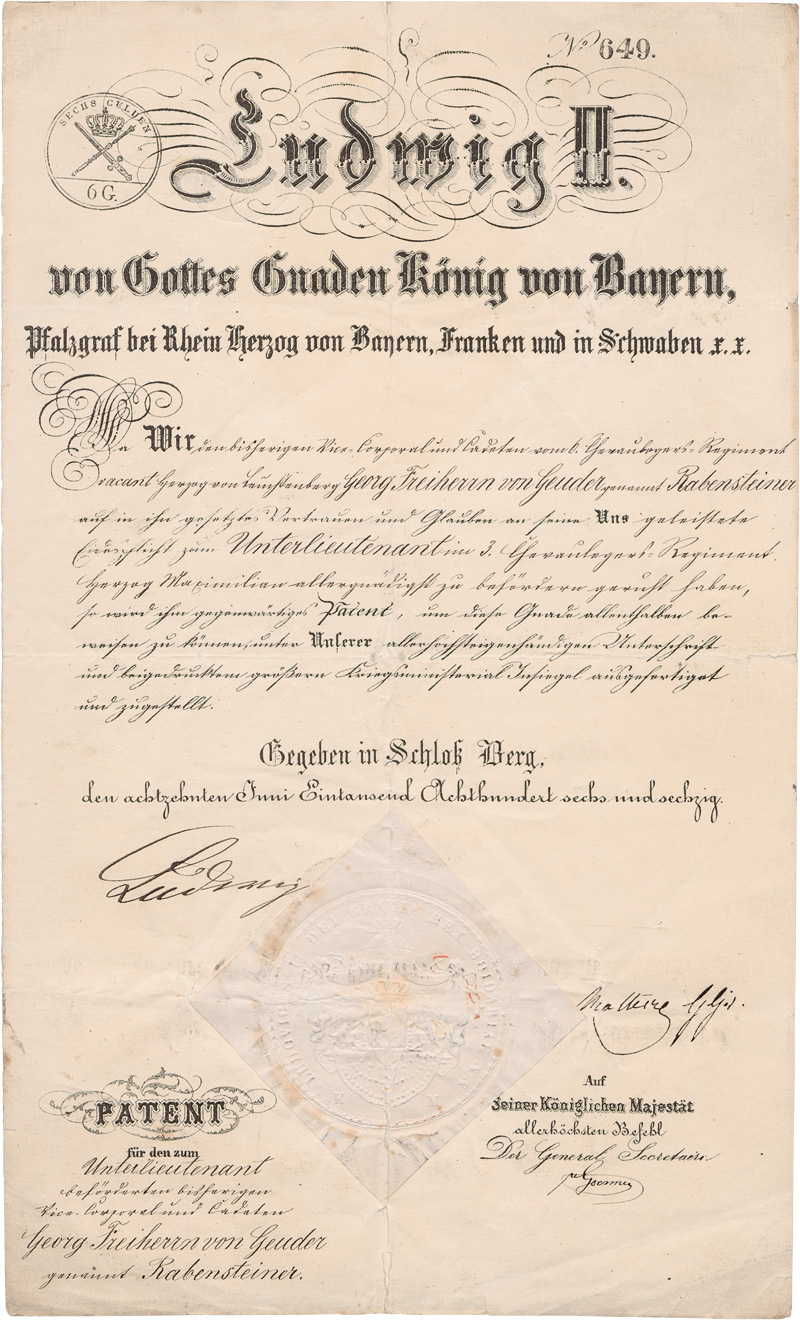 No 649.
SECHS GULDEN
6 G.
Ludwig II.
von Gottes Gnaden König von Bayern,
Pfalzgraf bei Rhein Herzog von Bayern, Franken und in Schwaben x. x.
Da Wir den bisherigen Vice-Corporal und Cadeten vom 6. Chevaulegers-Regiment
vacant Herzog von Leuchtenberg Georg Freiherrn von Geuder genannt Rabensteiner
auf in ihn gesetztes Vertrauen und Glauben an seine Uns geleistete
Eidespflicht zum Unterlieutenant im 3. Chevaulegers-Regiment
Herzog Maximilian allergnädigst zu befördern geruht haben,
so wird ihm gegenwärtiges Patent, um diese Gnade allenthalben be-
weisen zu können, unter Unserer allerhöchsteigenhändigen Unterschrift
und beigedrucktem größern Kriegsministerial Insiegel ausgefertiget
und zugestellt.
Gegeben in Schloß Berg,
den achtzehnten Juni Eintausend Achthundert sechs und sechzig.
Ludwig
Auf
Seiner Königlichen Majestät
allerhöchsten Befehl
Der General Secretaire
PATENT
für den zum
Unterlieutenant
beförderten bisherigen
Vice-Corporal und Cadeten
Georg Freiherrn von Geuder
genannt Rabensteiner.